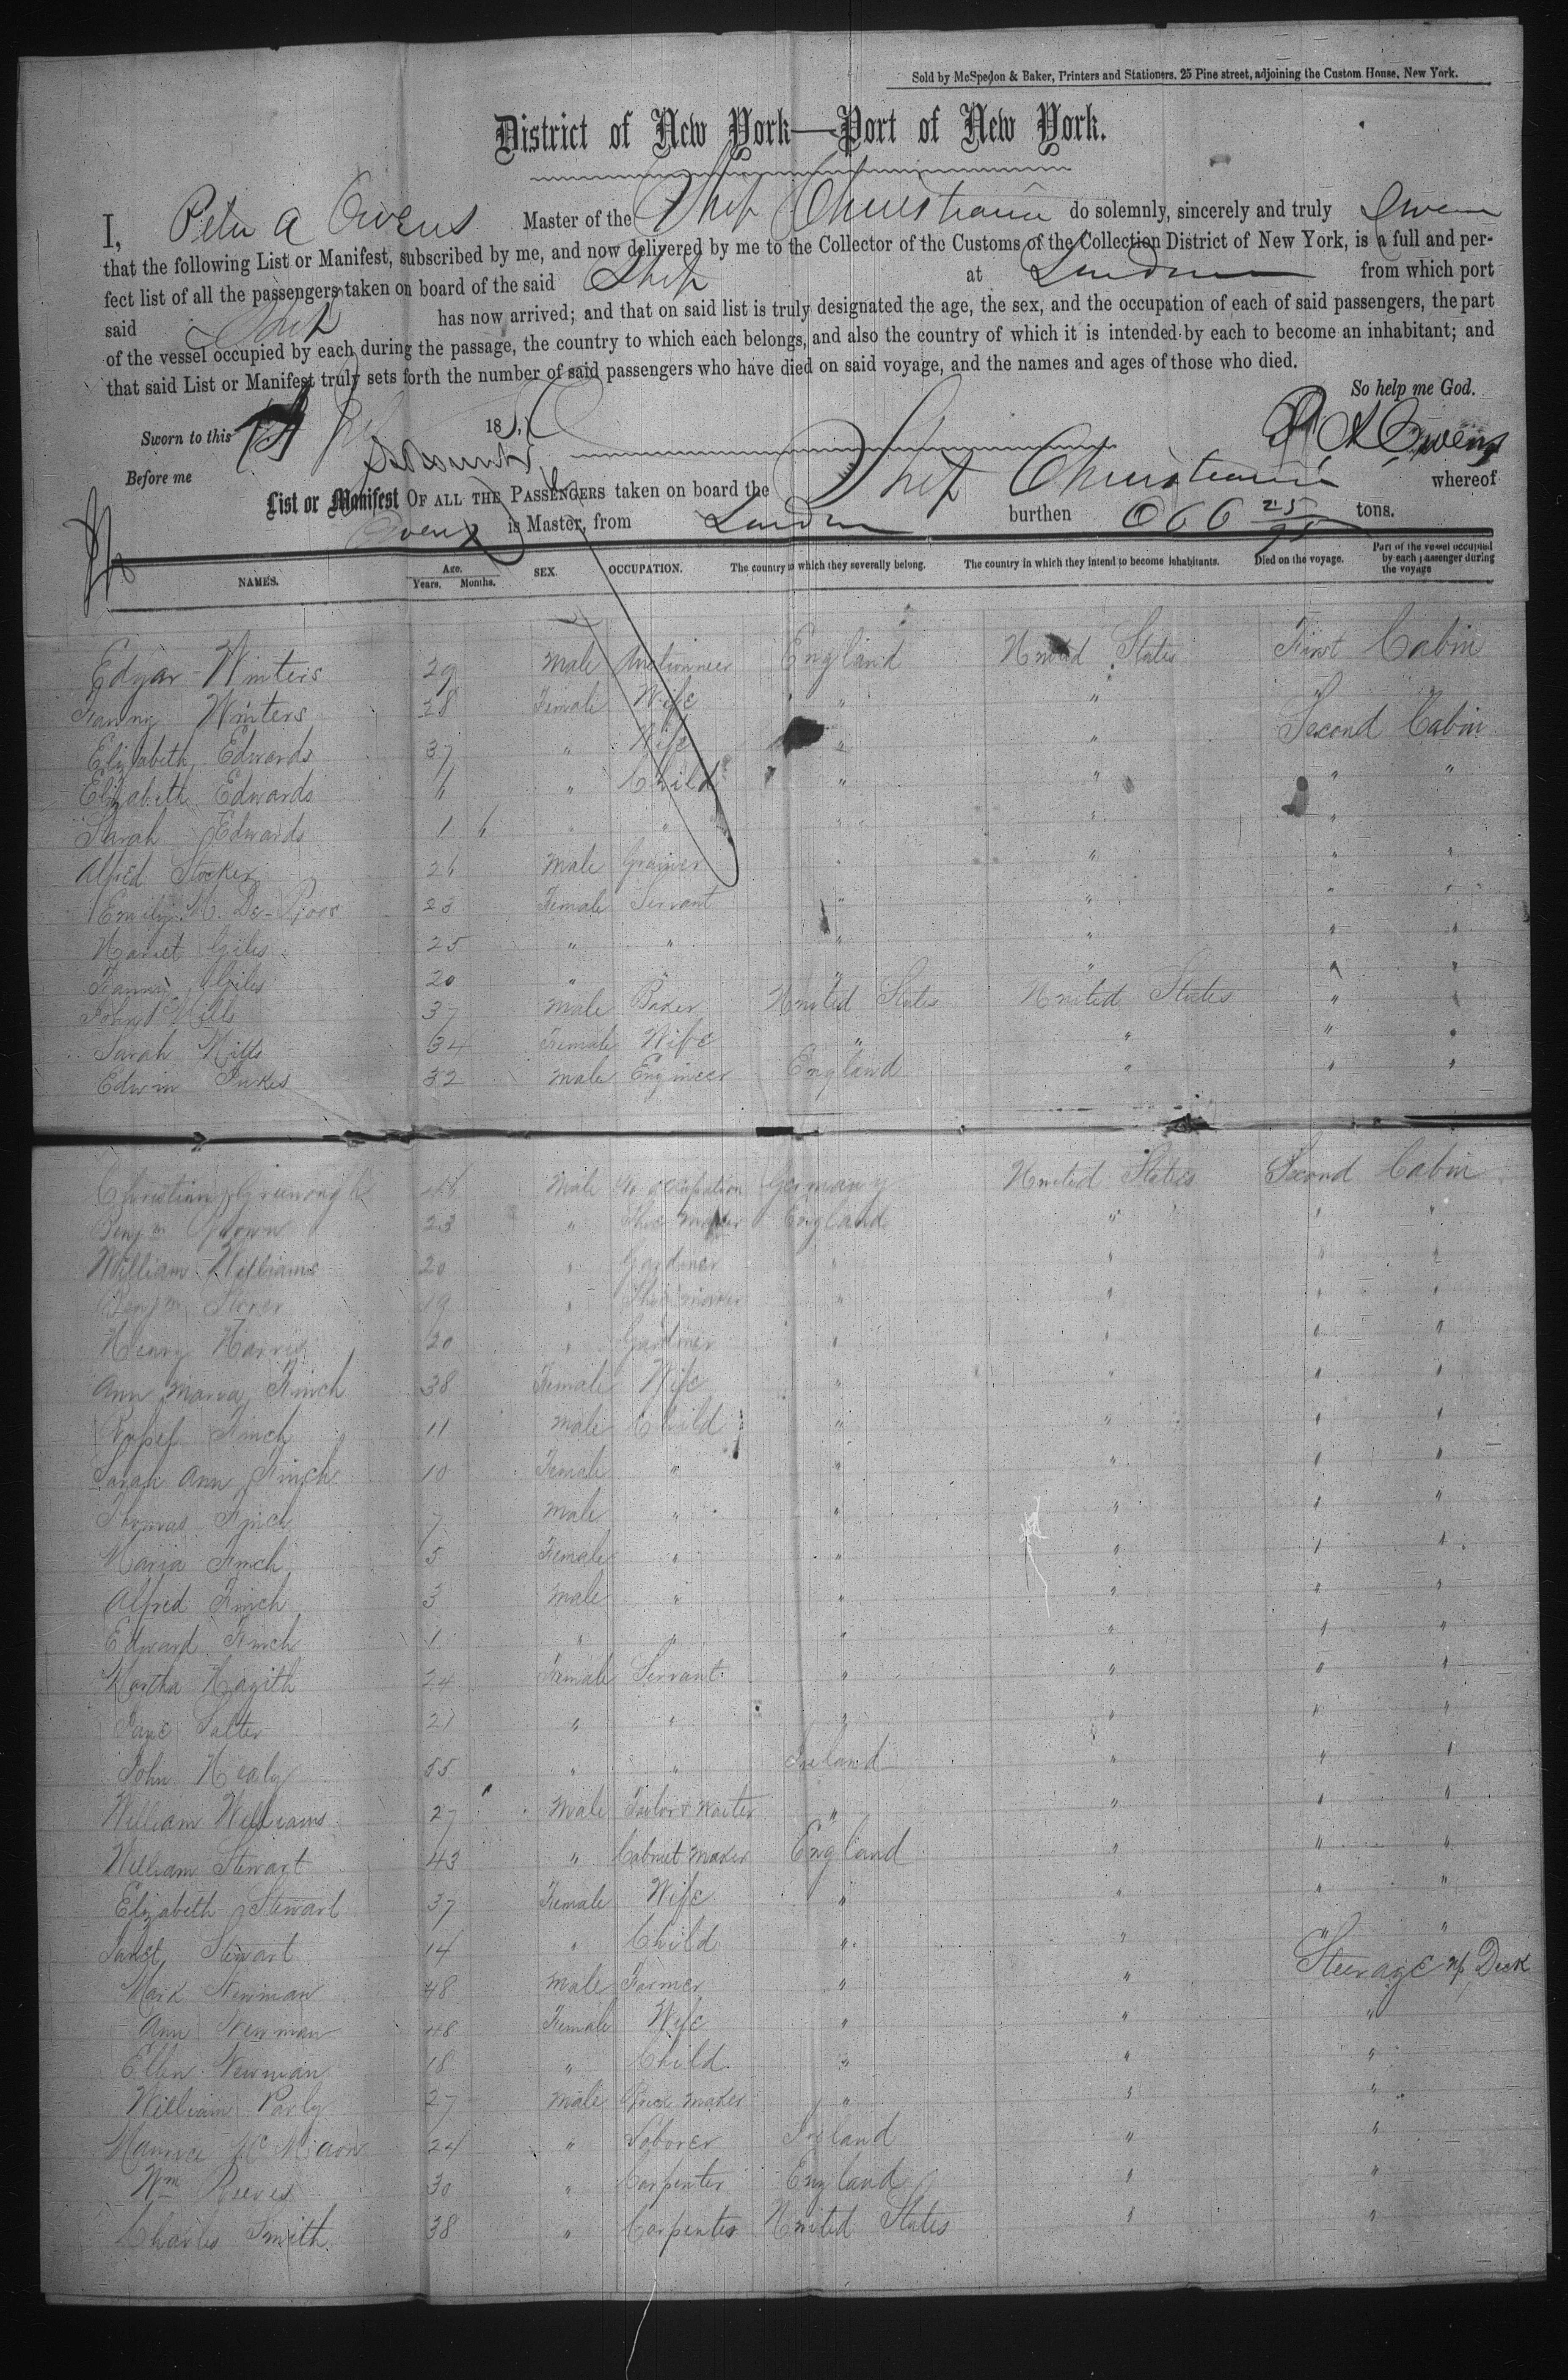 Sold by McSpedon & Baker, Printers and Stationers, 25 Pine street, adjoining the Custom House, New York.
District of New York—Port of New York.
I, Peter A Owens Master of the Ship Christiana do solemnly, sincerely and truly Swear
that the following List or Manifest, subscribed by me, and now delivered by me to the Collector of the Customs of the Collection District of New York, is a full and per-
fect list of all the passengers taken on board of the said Ship at London from which port
said Ship has now arrived; and that on said list is truly designated the age, the sex, and the occupation of each of said passengers, the part
of the vessel occupied by each during the passage, the country to which each belongs, and also the country of which it is intended by each to become an inhabitant; and
that said List or Manifest truly sets forth the number of said passengers who have died on said voyage, and the names and ages of those who died.
So help me God.
Sworn to this 185 P A Owens
Before me
List or Manifest OF ALL THE PASSENGERS taken on board the Ship Christiana whereof
Owens is Master, from London burthen 666 25/95 tons.
NAMES. Age. Years. Months. SEX. OCCUPATION. The country to which they severally belong. The country in which they intend to become inhabitants. Died on the voyage. Part of the vessel occupied by each passenger during the voyage
Edgar Winters 29 Male Auctionneer England United States First Cabin
Fanny Winters 28 Female Wife " " "
Elizabeth Edwards 37 " Wife " " Second Cabin
Elizabeth Edwards " Child " " " "
Sarah Edwards 1 6 " " " " "
Alfred Stocker 26 Male Grainer " " " "
Emily M. De- 23 Female Servant " " " "
Harriet Giles 25 " " " " " "
Fanny Giles 20 " " " " " "
John Mills 37 Male Baker United States United States " "
Sarah Mills 34 Female Wife " " " "
Edwin Jukes 32 Male Engineer England " " "
Christian Greenough Male No occupation Germany United States Second Cabin
Benjm Brown 23 " Shoe Maker England " " "
William Williams 20 " Gardiner " " " "
Benjm 19 " Shoe maker " " " "
Henry Harris 20 " Gardiner " " " "
Ann Maria Finch 38 Female Wife " " " "
Finch 11 Male Child " " " "
Sarah Ann Finch 10 Female " " " " "
Thomas Finch 7 Male " " " " "
Maria Finch 5 Female " " " " "
Alfred Finch 3 Male " " " " "
Edward Finch 1 " " " " " "
Martha 24 Female Servant " " " "
Jane Salter 21 " " " " " "
John Healy 55 " " Ireland " " "
William Williams 27 Male Tailor & Waiter " " " "
William Stewart 43 " Cabinet Maker England " " "
Elizabeth Stewart 37 Female Wife " " " "
Janet Stewart 14 " Child " " " "
Mark Newman 48 Male Farmer " " Steerage up Deck
Ann Newman 48 Female Wife " " "
Ellen Newman 18 " Child " " "
William 27 Male Brick Maker " " "
Maurice 24 " Laborer Ireland " "
Wm Reeves 30 " Carpenter England " "
Charles Smith 38 " Carpenter United States " "